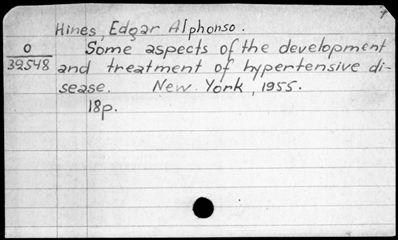 7
Hines, Edgar Alphonso.
0
39548
Some aspects of the development
and treatment of hypertensive di-
sease. New York, 1955.
18p.